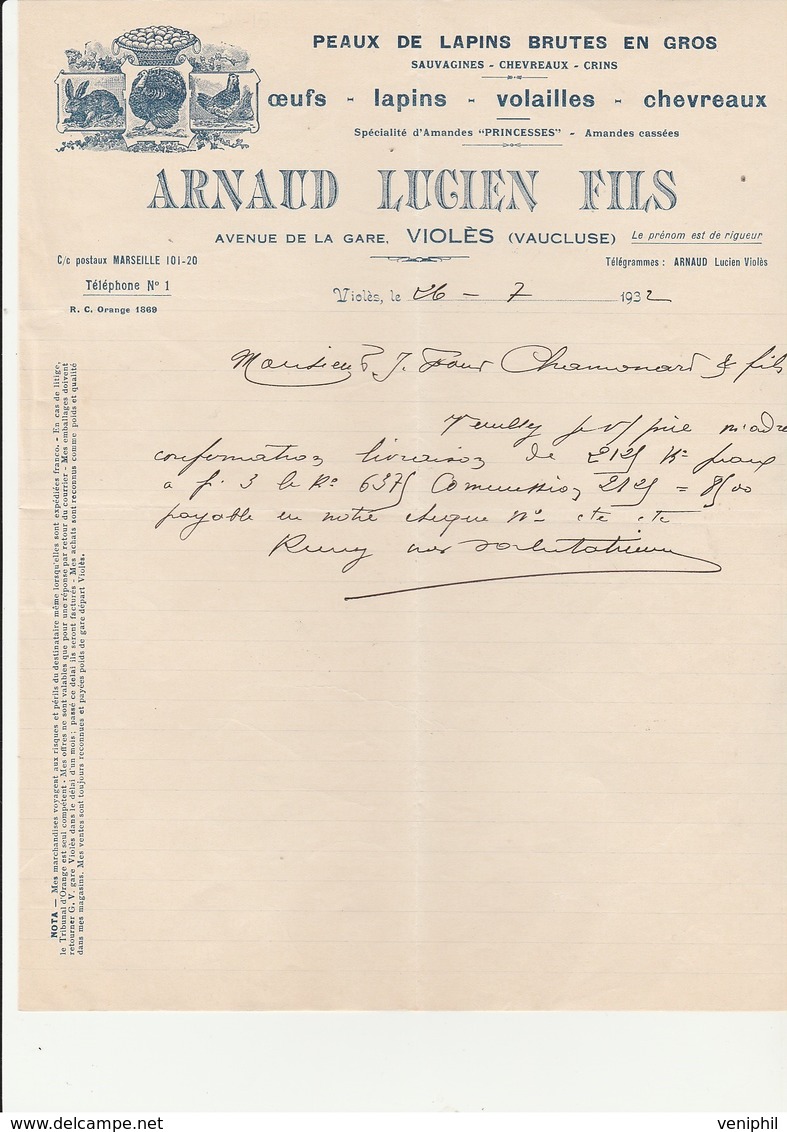 PEAUX DE LAPINS BRUTES EN GROS
SAUVAGINES - CHEVREAUX - CRINS
œufs - lapins - volailles - chevreaux
Spécialité d'Amandes "PRINCESSES" - Amandes cassées
ARNAUD LUCIEN FILS
AVENUE DE LA GARE, VIOLÈS (VAUCLUSE) Le prénom est de rigueur
C/c postaux MARSEILLE 101-20
Télégrammes : ARNAUD Lucien Violès
Téléphone N° 1
R. C. Orange 1869
Violès, le 26 - 7 1932
Chamonard & fils
confirmation livraison de 2125 K°
à f. 3 le K° 6375 Commission 2125 = 8500
payable en notre chèque N° etc etc
nos salutations
NOTA — Mes marchandises voyagent aux risques et périls du destinataire même lorsqu'elles sont expédiées franco. - En cas de litige,
le Tribunal d'Orange est seul compétent - Mes offres ne sont valables que pour une réponse par retour du courrier - Mes emballages doivent
retourner G. V. gare Violès dans le délai d'un mois ; passé ce délai ils seront facturés - Mes achats sont reconnus comme poids et qualité
dans mes magasins. Mes ventes sont toujours reconnues et payées poids de gare départ Violès.
veniphil